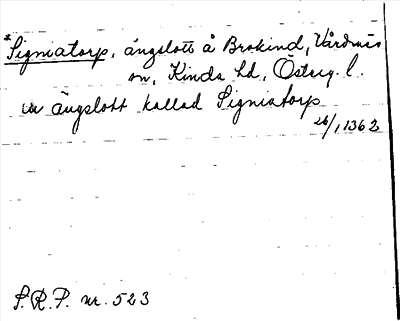 *Signiatorp, ängslott å Brokind, Vårdnäs
sn, Kinda hd, Österg. l.
en ängslott kallad Signiatorp
26/1 1362
S.R.P. nr. 523